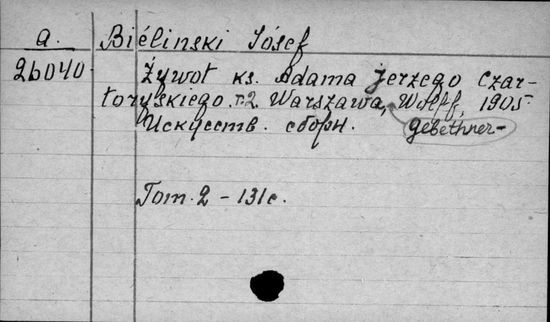 a. Biélinski Iósef
26040. Żywot ks. Adama Jerzego Czar-
toryskiego. т.2. Warszawa, Wolff, 1905
Искусств. сборн. Gebethner-
Tom. 2 - 131c.